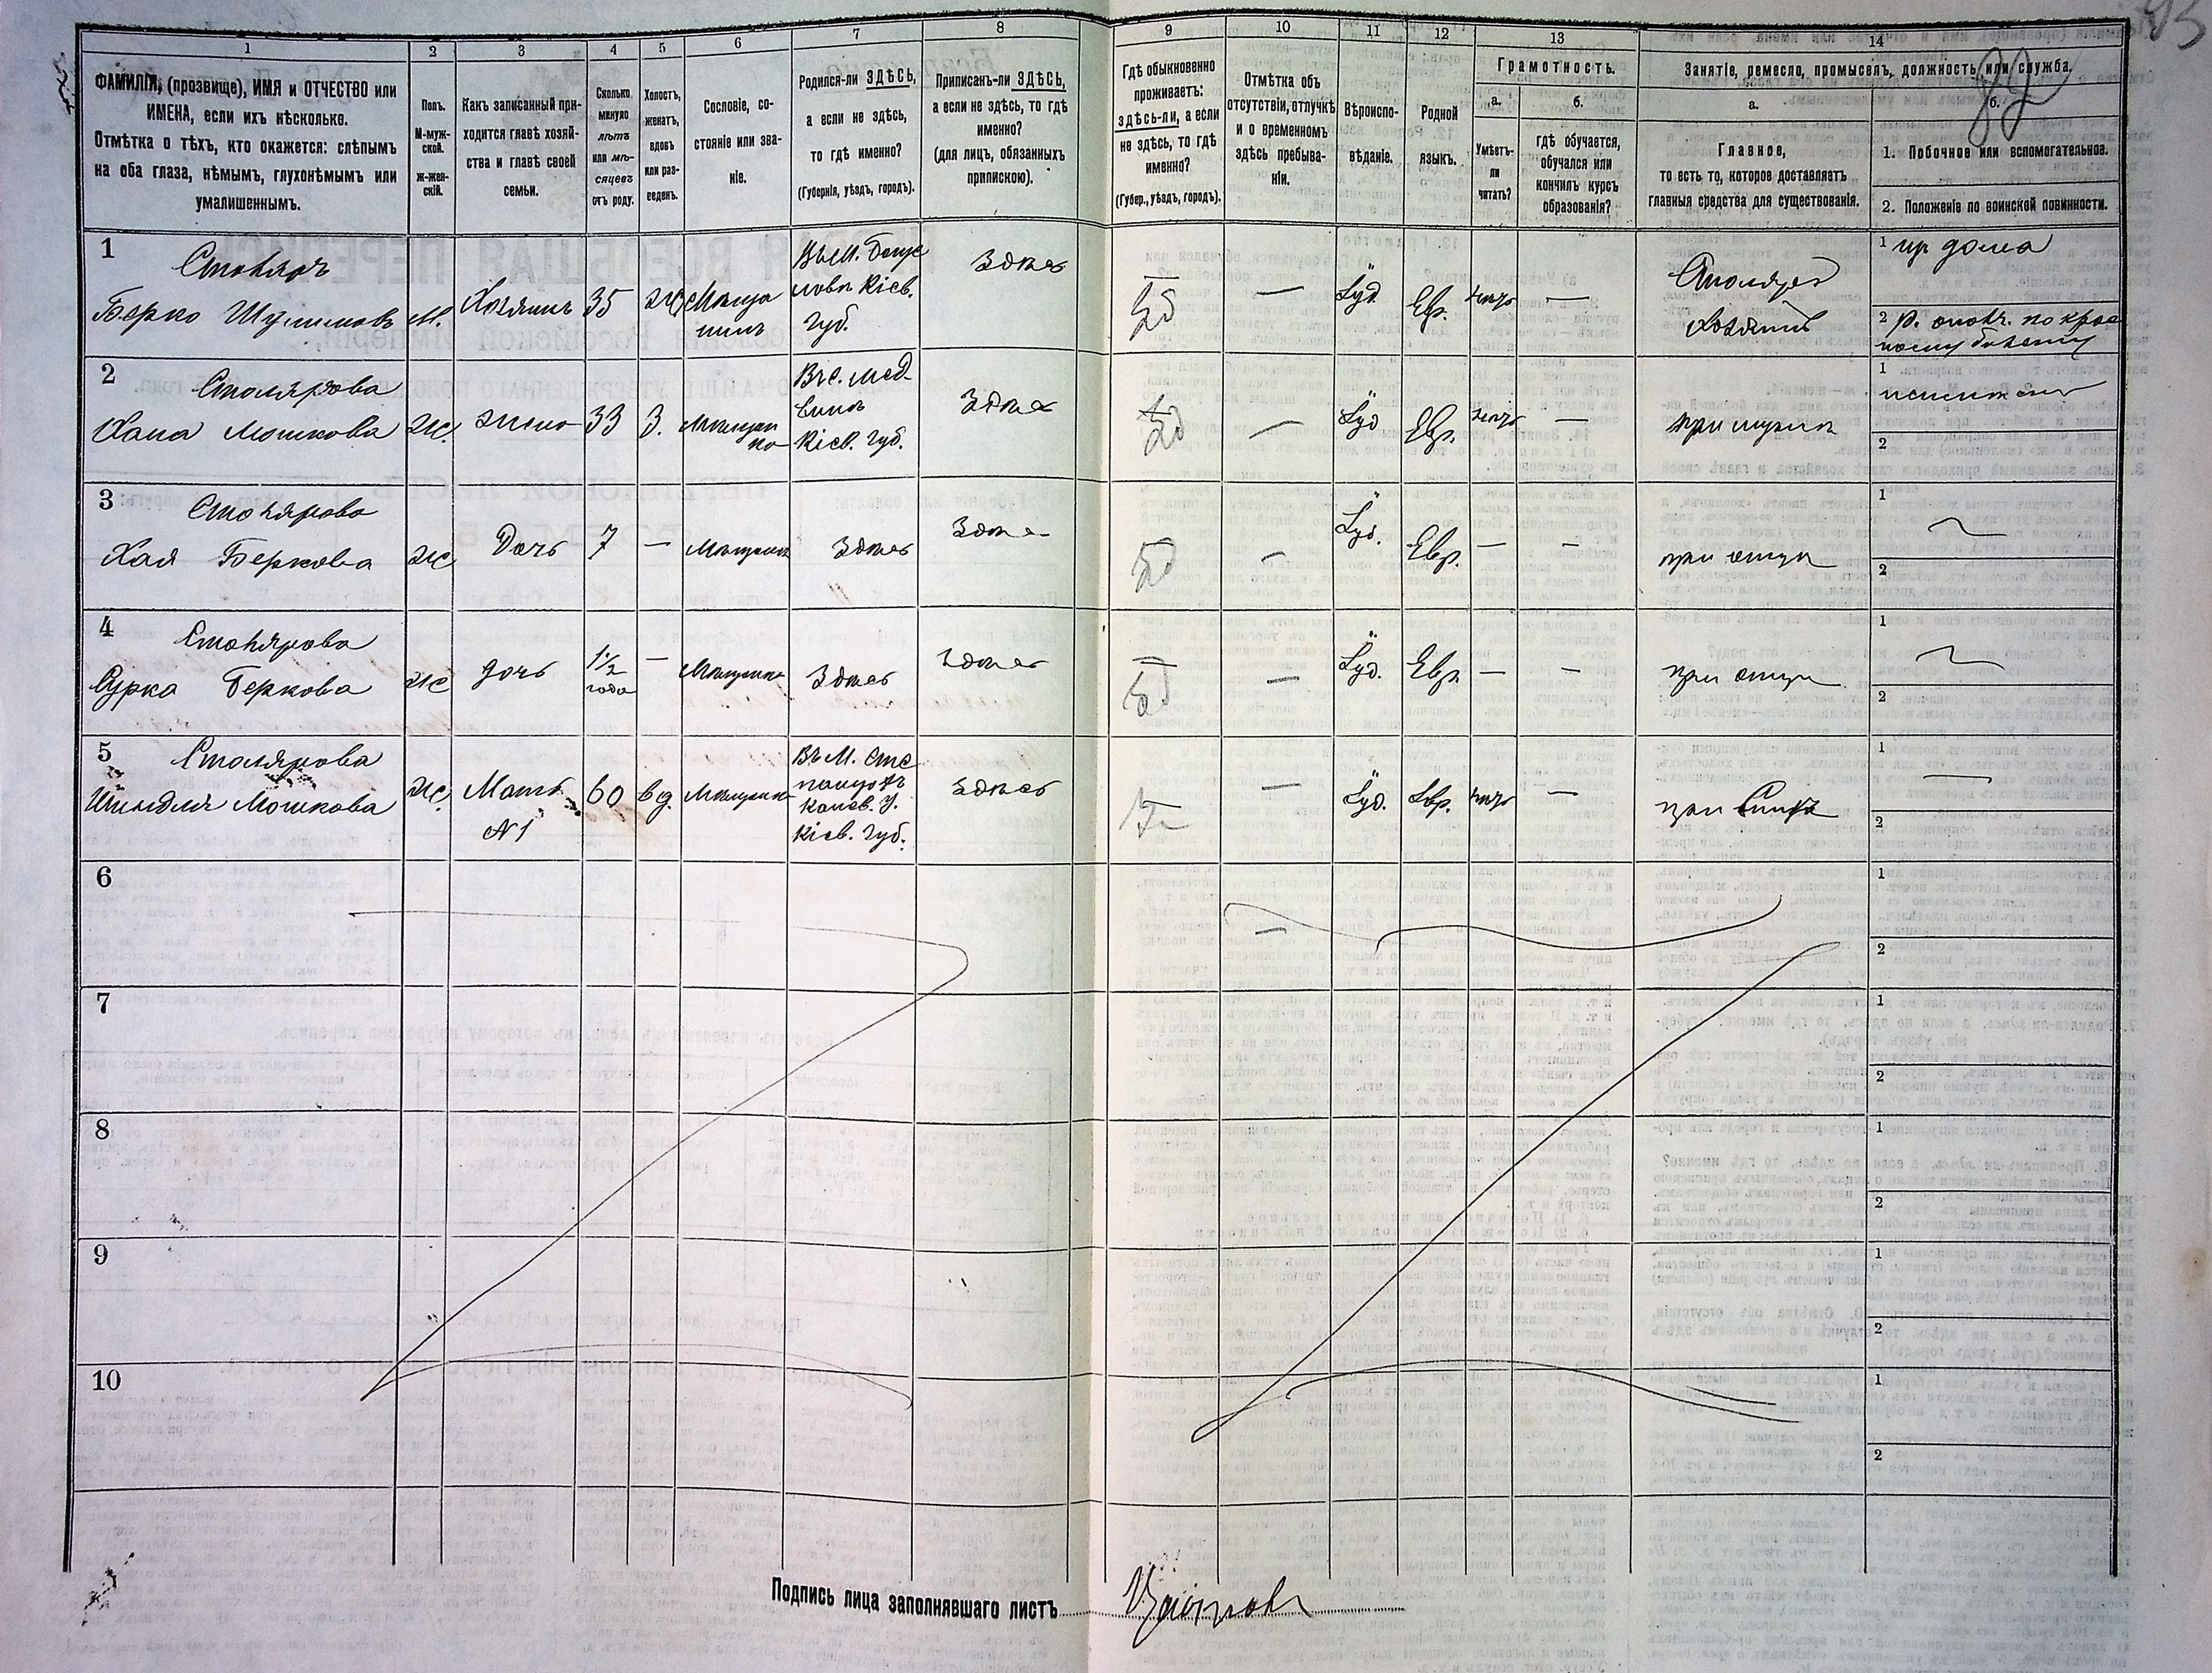 1 2 3 4 5 6 7 8 9 10 11 12 13 14
ФАМИЛІЯ, (прозвище), ИМЯ и ОТЧЕСТВО или
ИМЕНА, если ихъ нѣсколько.
Отмѣтка о тѣхъ, кто окажется: слѣпымъ
на оба глаза, нѣмымъ, глухонѣмымъ или
умалишеннымъ.
Полъ.
М-муж-
ской.
ж-жен-
скій.
Какъ записанный при-
ходится главѣ хозяй-
ства и главѣ своей
семьи.
Сколько
минуло
лѣтъ
или мѣ-
сяцевъ
отъ роду.
Холостъ,
женатъ,
вдовъ
или раз-
веденъ.
Сословіе, со-
стояніе или зва-
ніе.
Родился-ли ЗДѢСЬ,
а если не здѣсь,
то гдѣ именно?
(Губернія, уѣздъ, городъ).
Приписанъ-ли ЗДѢСЬ,
а если не здѣсь, то гдѣ
именно?
(для лицъ, обязанныхъ
припискою).
Гдѣ обыкновенно
проживаетъ:
здѣсь-ли, а если
не здѣсь, то гдѣ
именно?
(Губер., уѣздъ, городъ).
Отмѣтка объ
отсутствіи, отлучкѣ
и о временномъ
здѣсь пребыва-
ніи.
Вѣроиспо-
вѣданіе.
Родной
языкъ.
Грамотность.
а.
Умѣетъ-
ли
читать?
б.
гдѣ обучается,
обучался или
кончилъ курсъ
образованія?
Занятіе, ремесло, промыселъ, должность или служба.
а.
Главное,
то есть то, которое доставляетъ
главныя средства для существованія.
б.
1. Побочное или вспомогательное.
2. Положеніе по воинской повинности.
1
Столяръ
Берко Шулимовъ
М.
Хозяинъ
35
Мѣща
нинъ
Кіев.
Губ.
Здѣсь
—
Іуд.
Евр.
—
Столяръ
Хозяинъ
1
2
2
Столярова
Хана Мошкова
Ж.
жена
33
З.
Мѣщан
ка
Кіев. Губ.
Здѣсь
—
Іуд
Евр.
—
при мужѣ
1
2
3
Столярова
Хая Беркова
Ж
Дочь
7
—
Мѣщанка
Здѣсь
Здѣсь
—
Іуд.
Евр.
—
—
при отцѣ
1
2
4
Столярова
Сурка Беркова
Ж
дочь
1½
года
—
Мѣщанка
Здѣсь
Здѣсь
—
Іуд.
Евр.
—
—
при отцѣ
1
2
5
Столярова
Шиндля Мошкова
Ж
Мать
№1
60
вд.
Мѣщанка
Въ М. Сте
панцахъ
Канев. У.
Кіев. Губ.
Здѣсь
—
Іуд.
Евр.
—
при Сынѣ
1
2
6
1
2
7
1
2
8
1
2
9
1
2
10
1
2
Подпись лица заполнявшаго листъ